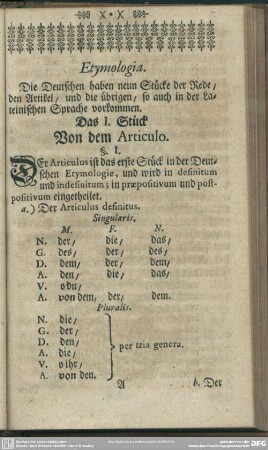 Etymologia.
Die Deutschen haben neun Stücke der Rede/
den Artikel/ und die übrigen/ so auch in der La-
teinischen Sprache vorkommen.
Das I. Stück
Von dem Articulo.
§. I.
DEr Articulus ist das erste Stück in der Deut-
schen Etymologie, und wird in definitum
und indefinitum; in præpositivum und post-
positivum eingetheilet.
a.) Der Articulus definitus.
Singularis.
M. F. N.
N. der/ die/ das/
G. des/ der/ des/
D. dem/ der/ dem/
A. den/ die/ das/
V. o du/
A. von dem/ der/ dem.
Pluralis.
N. die/
G. der/
D. den/
A. die/
V. o ihr/
A. von den.
per tria genera.
A b. Der